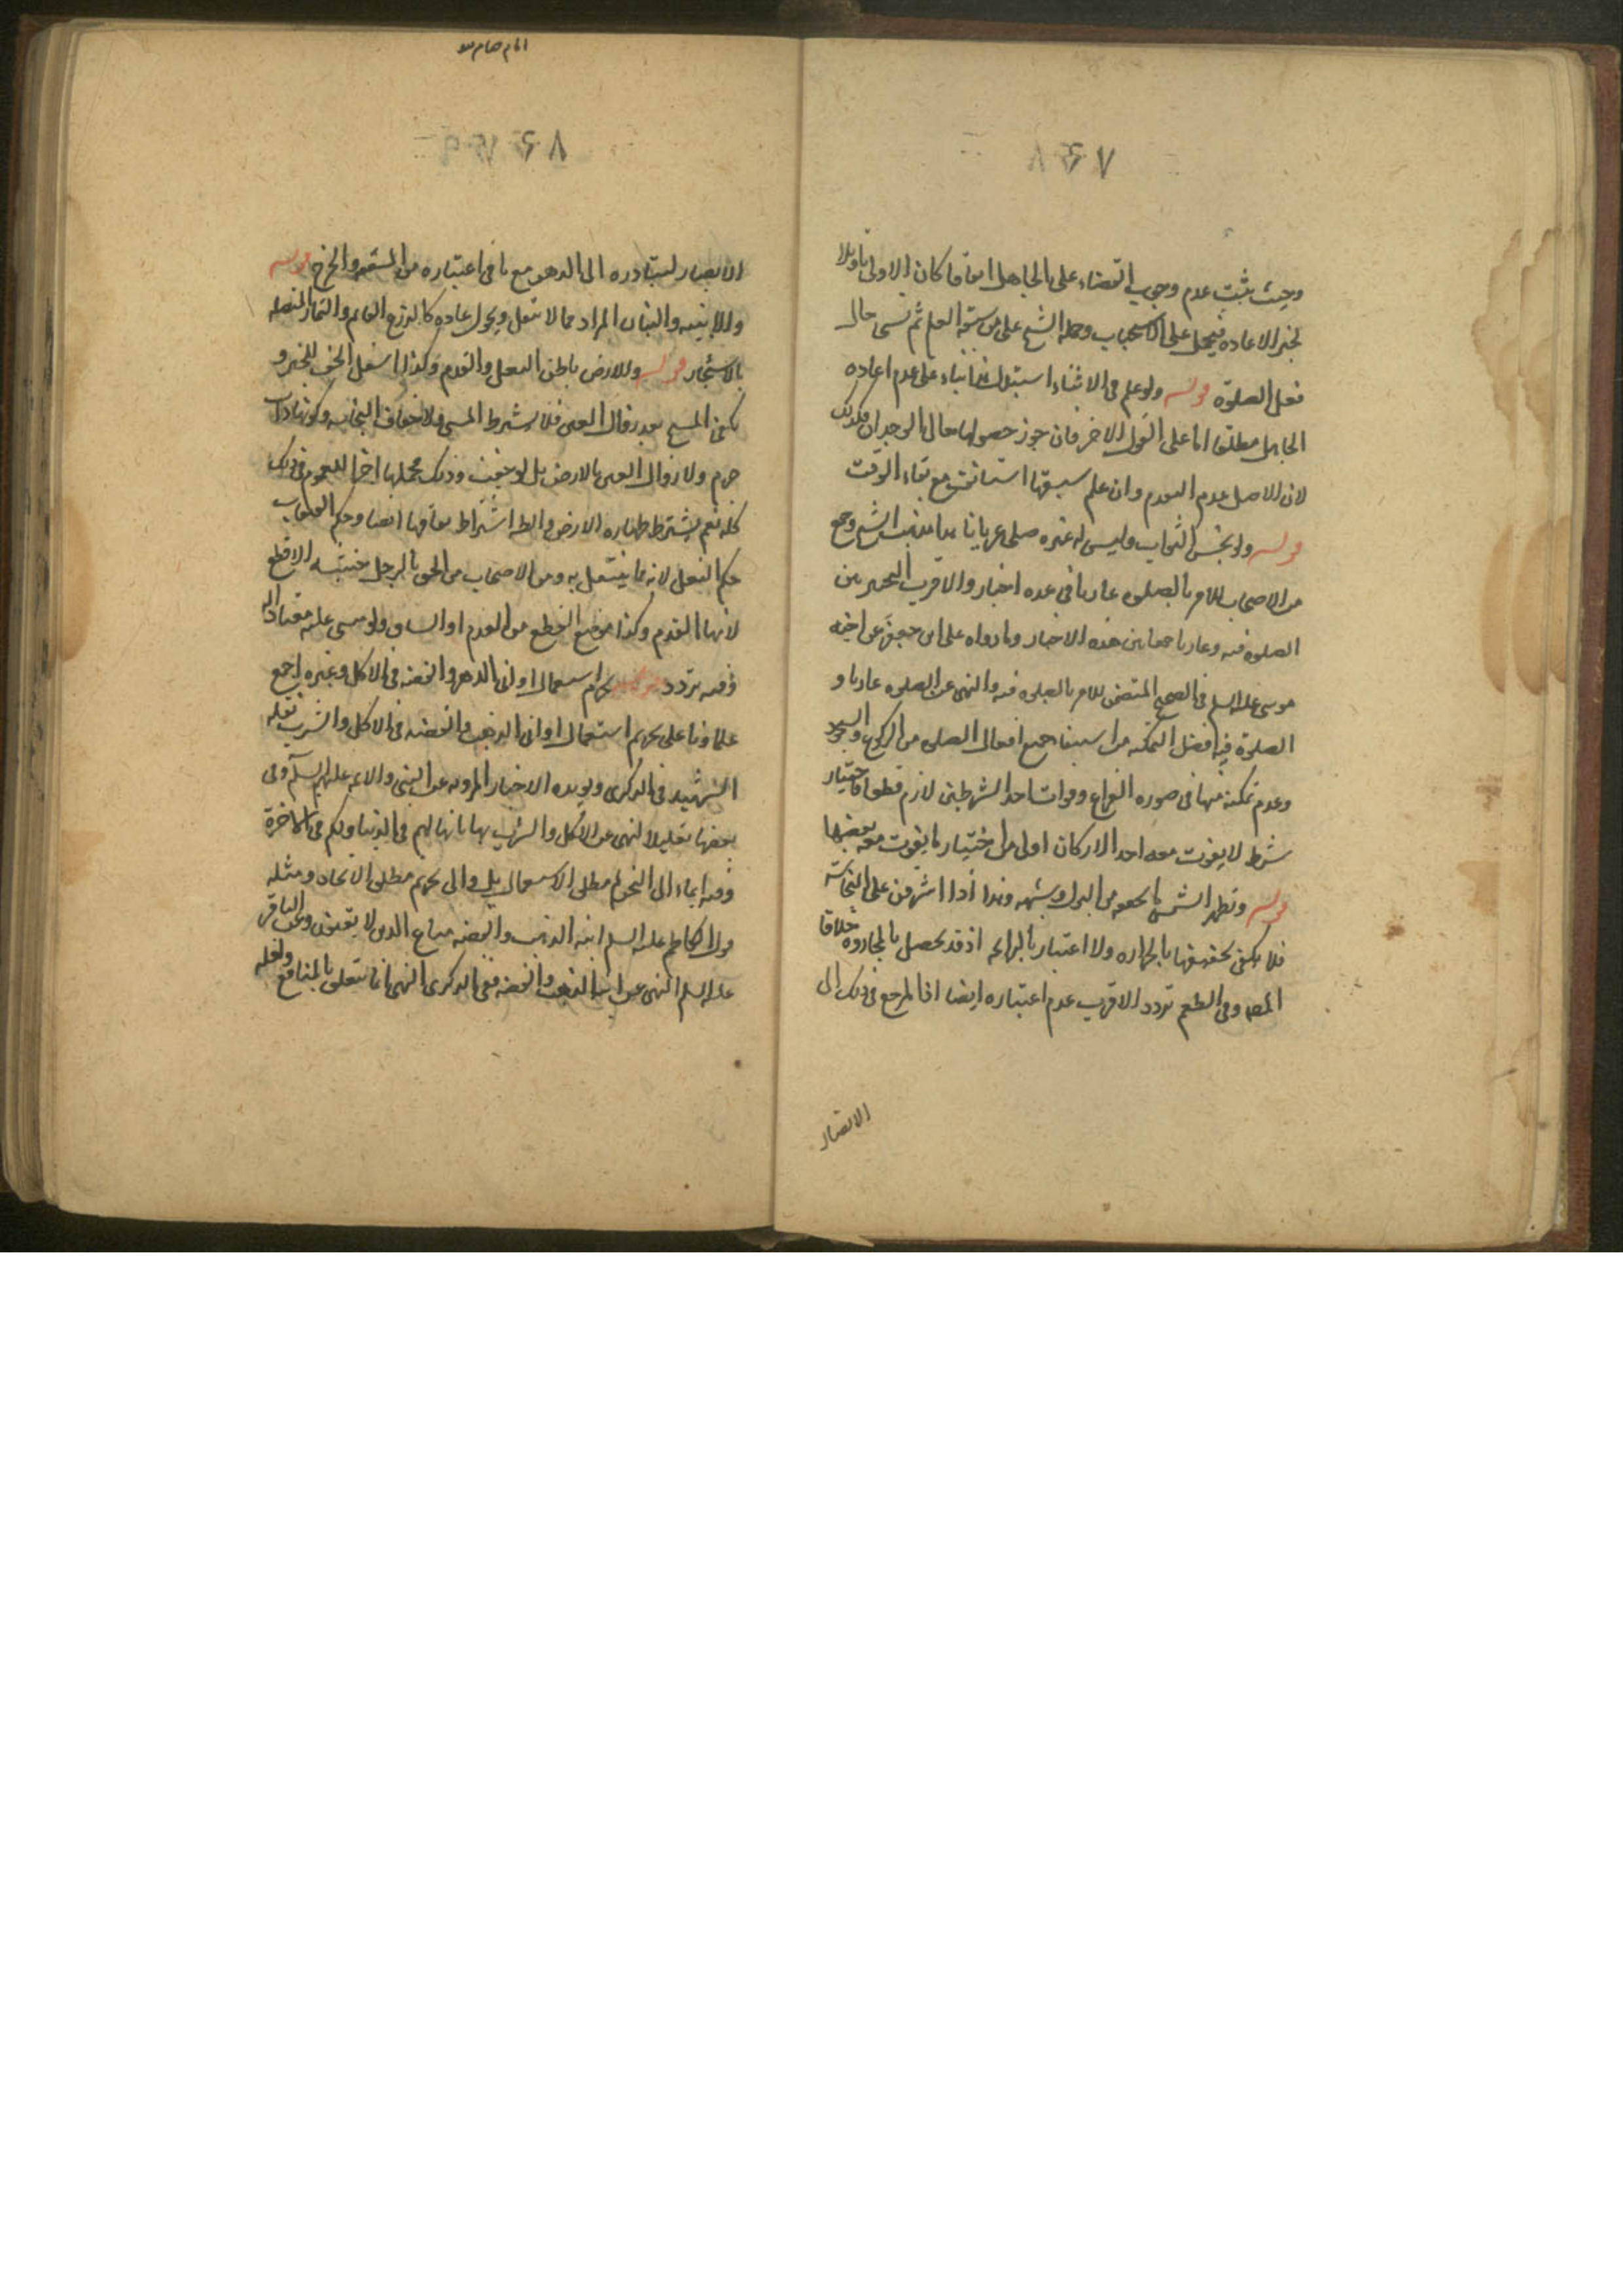 وحيث يثبت عدم وجوب القضاء على الجاهل اتفاقا كان الاولى تاويلا
لخبر الاعاده فيحمل على الاستحباب وحمله الشيخ على من سبقه العلم ثم نسى حال
فعل الصلوة قوله ولو علم فى الاثناء استبدل بناء على عدم اعاده
الجاهل مطلقا اما على القول الاخر فان جوز حصولها حال الوجدان فكذلك
لان الاصل عدم التقدم وان علم سبقها استانف مع بقاء الوقت
قوله ولو نجس الثواب وليس له غيره صلى عريانا هذا مذهب الشيخ وجمع
من الاصحاب للامر بالصلوه عاريا فى عده اخبار والاقرب التخيير بين
الصلوه فيه وعاريا جمعا بين هذه الاخبار وما رواه على ابن جعفر عن اخيه
موسى عليه السلم فى الصحيح المتضمن للامر بالصلوه فيه والنهى عن الصلوه عاريا و
الصلوة فيه افضل لتمكنه من استيفاء جميع افعال الصلوه من الركوع والسجود
وعدم تمكنه منها فى صوره النزاع وفوات احد الشرطين لازم قطعا فاختيار
شرط لا يفوت معه احد الاركان اولى من اختيار ما يفوت معه بعضها
قوله وتطهر الشمس ما تجففه من البول وشبهه وهذا اذا اشرقت على النجاسة
فلا يكفى تجفيفها بالحراره ولا اعتبار بالرائحه اذ قد تحصل بالمجاروه خلافا
وفى الطعم تردد الاقرب عدم اعتباره ايضا اذ المرجع فى ذلك الى
الابصار
الابصار لتبادره الى الذهن مع ما فى اعتباره من المشقه والحرج قوله
والابنيه والنبات المراد مما لا ينقل ويحول عاده كالزرع القائم والثمار المتصله
بالاشجار قوله وللارض باطن النعل والقدم وكذا اسفل الخف للخبر و
يكفى المسح بعد زوال العين فلا يشترط المشى ولا جفاف النجاسه وكونها ذات
جرم ولا زوال العين بالارض بل لو جففت وذلك محملها اخرا للعموم فى ذلك
كله نعم يشترط طهاره الارض وجفافها ايضا وحكم القبقاب
حكم النعل لانه مما ينتعل به ومن الاصحاب من الحق بالرجل خشبه الاقطع
لانها القدم وكذا موضع القطع من القدم او الساق ولو مشى عليه معتادا له
ففيه تردد قوله يحرم استعمال اوانى الذهب والفضه فى الاكل وغيره اجمع
علماؤنا على تحريم استعمال اوانى الذهب والفضه فى الاكل والشرب نقله
الشهيد فى الذكرى ويؤيده الاخبار المرويه عن النبى والائمه عليهم السلم وفى
بعضها تعليلا للنهى عن الاكل والشرب بها بانها لهم فى الدنيا ولكم فى الاخرة
وفيه ايماء الى التحريم مطلق الاستعمال بل والى تحريم مطلق الاتخاذ ومثله
قول الكاظم عليه السلم انيه الذهب والفضه متاع الذين لا يوقنون وعن الباقر
عليه السلم النهى عن انيه الذهب والفضه ففى الذكرى النهى انما يتعلق بالمنافع ولعله